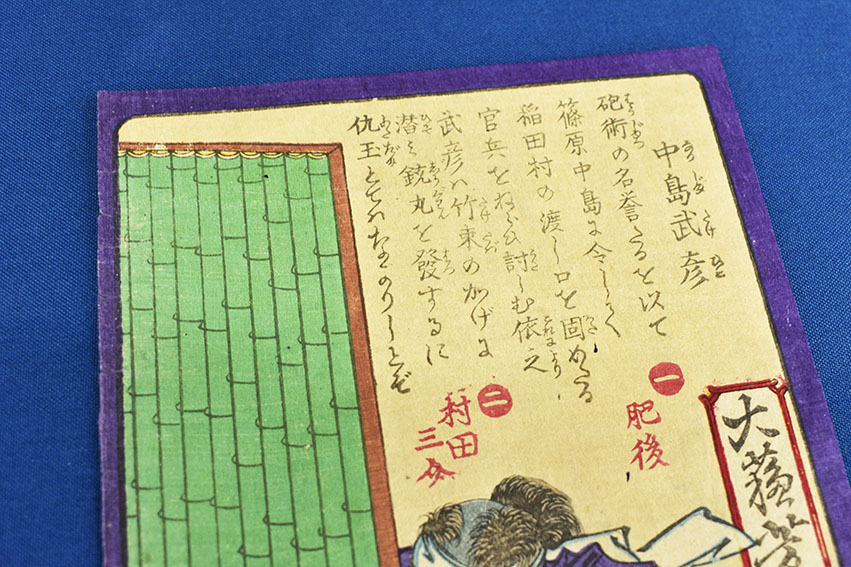 中島武彦
砲術の名誉たるを以て
篠原中島に令して
稲田村の渡し口を固めたる
官兵をねらひ討しむ依之
武彦ハ竹束のかげに
潜み銃丸を發するに
仇玉とてハなかりしとぞ
一
肥後
二
村田
三介
大蘇芳